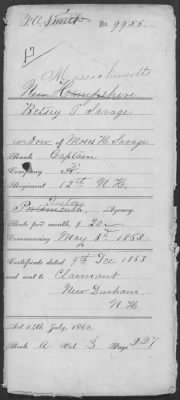 No. 9988.
Massachusetts
New Hampshire
Betsey T Savage
widow of Moses H. Savage
Rank Captain
Company K
Regiment 12th N.H.
Boston
Portsmouth Agency.
Rate per month, $ 20
Commencing May 3d 1863
Certificate dated 9th Dec 1863
and sent to Claimant
New Durham
N.H.
Act 14th July, 1862.
Book A Vol. 3 Page 227